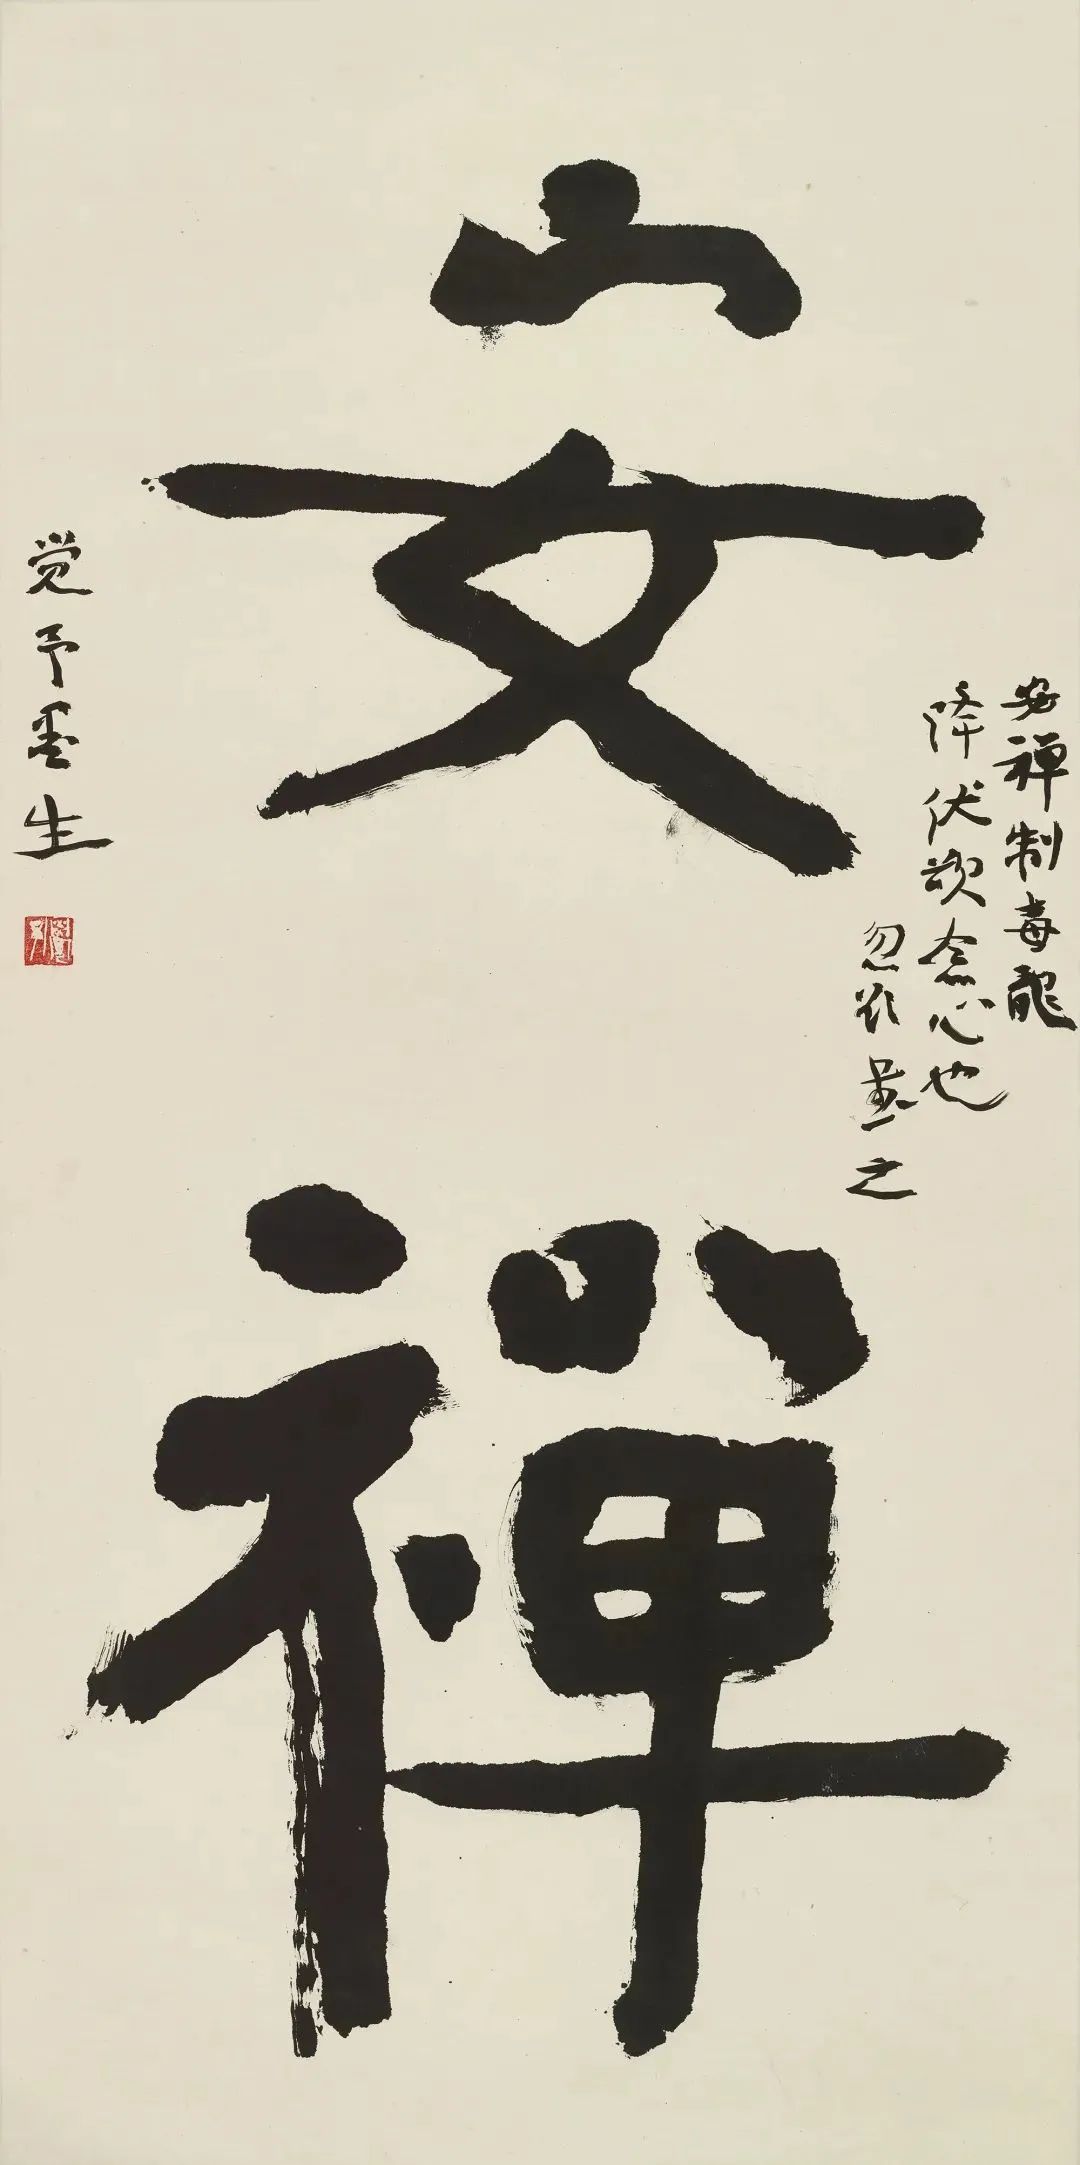 安禅
安禅制毒龍
降伏欲念心也
忽 之
觉予墨生